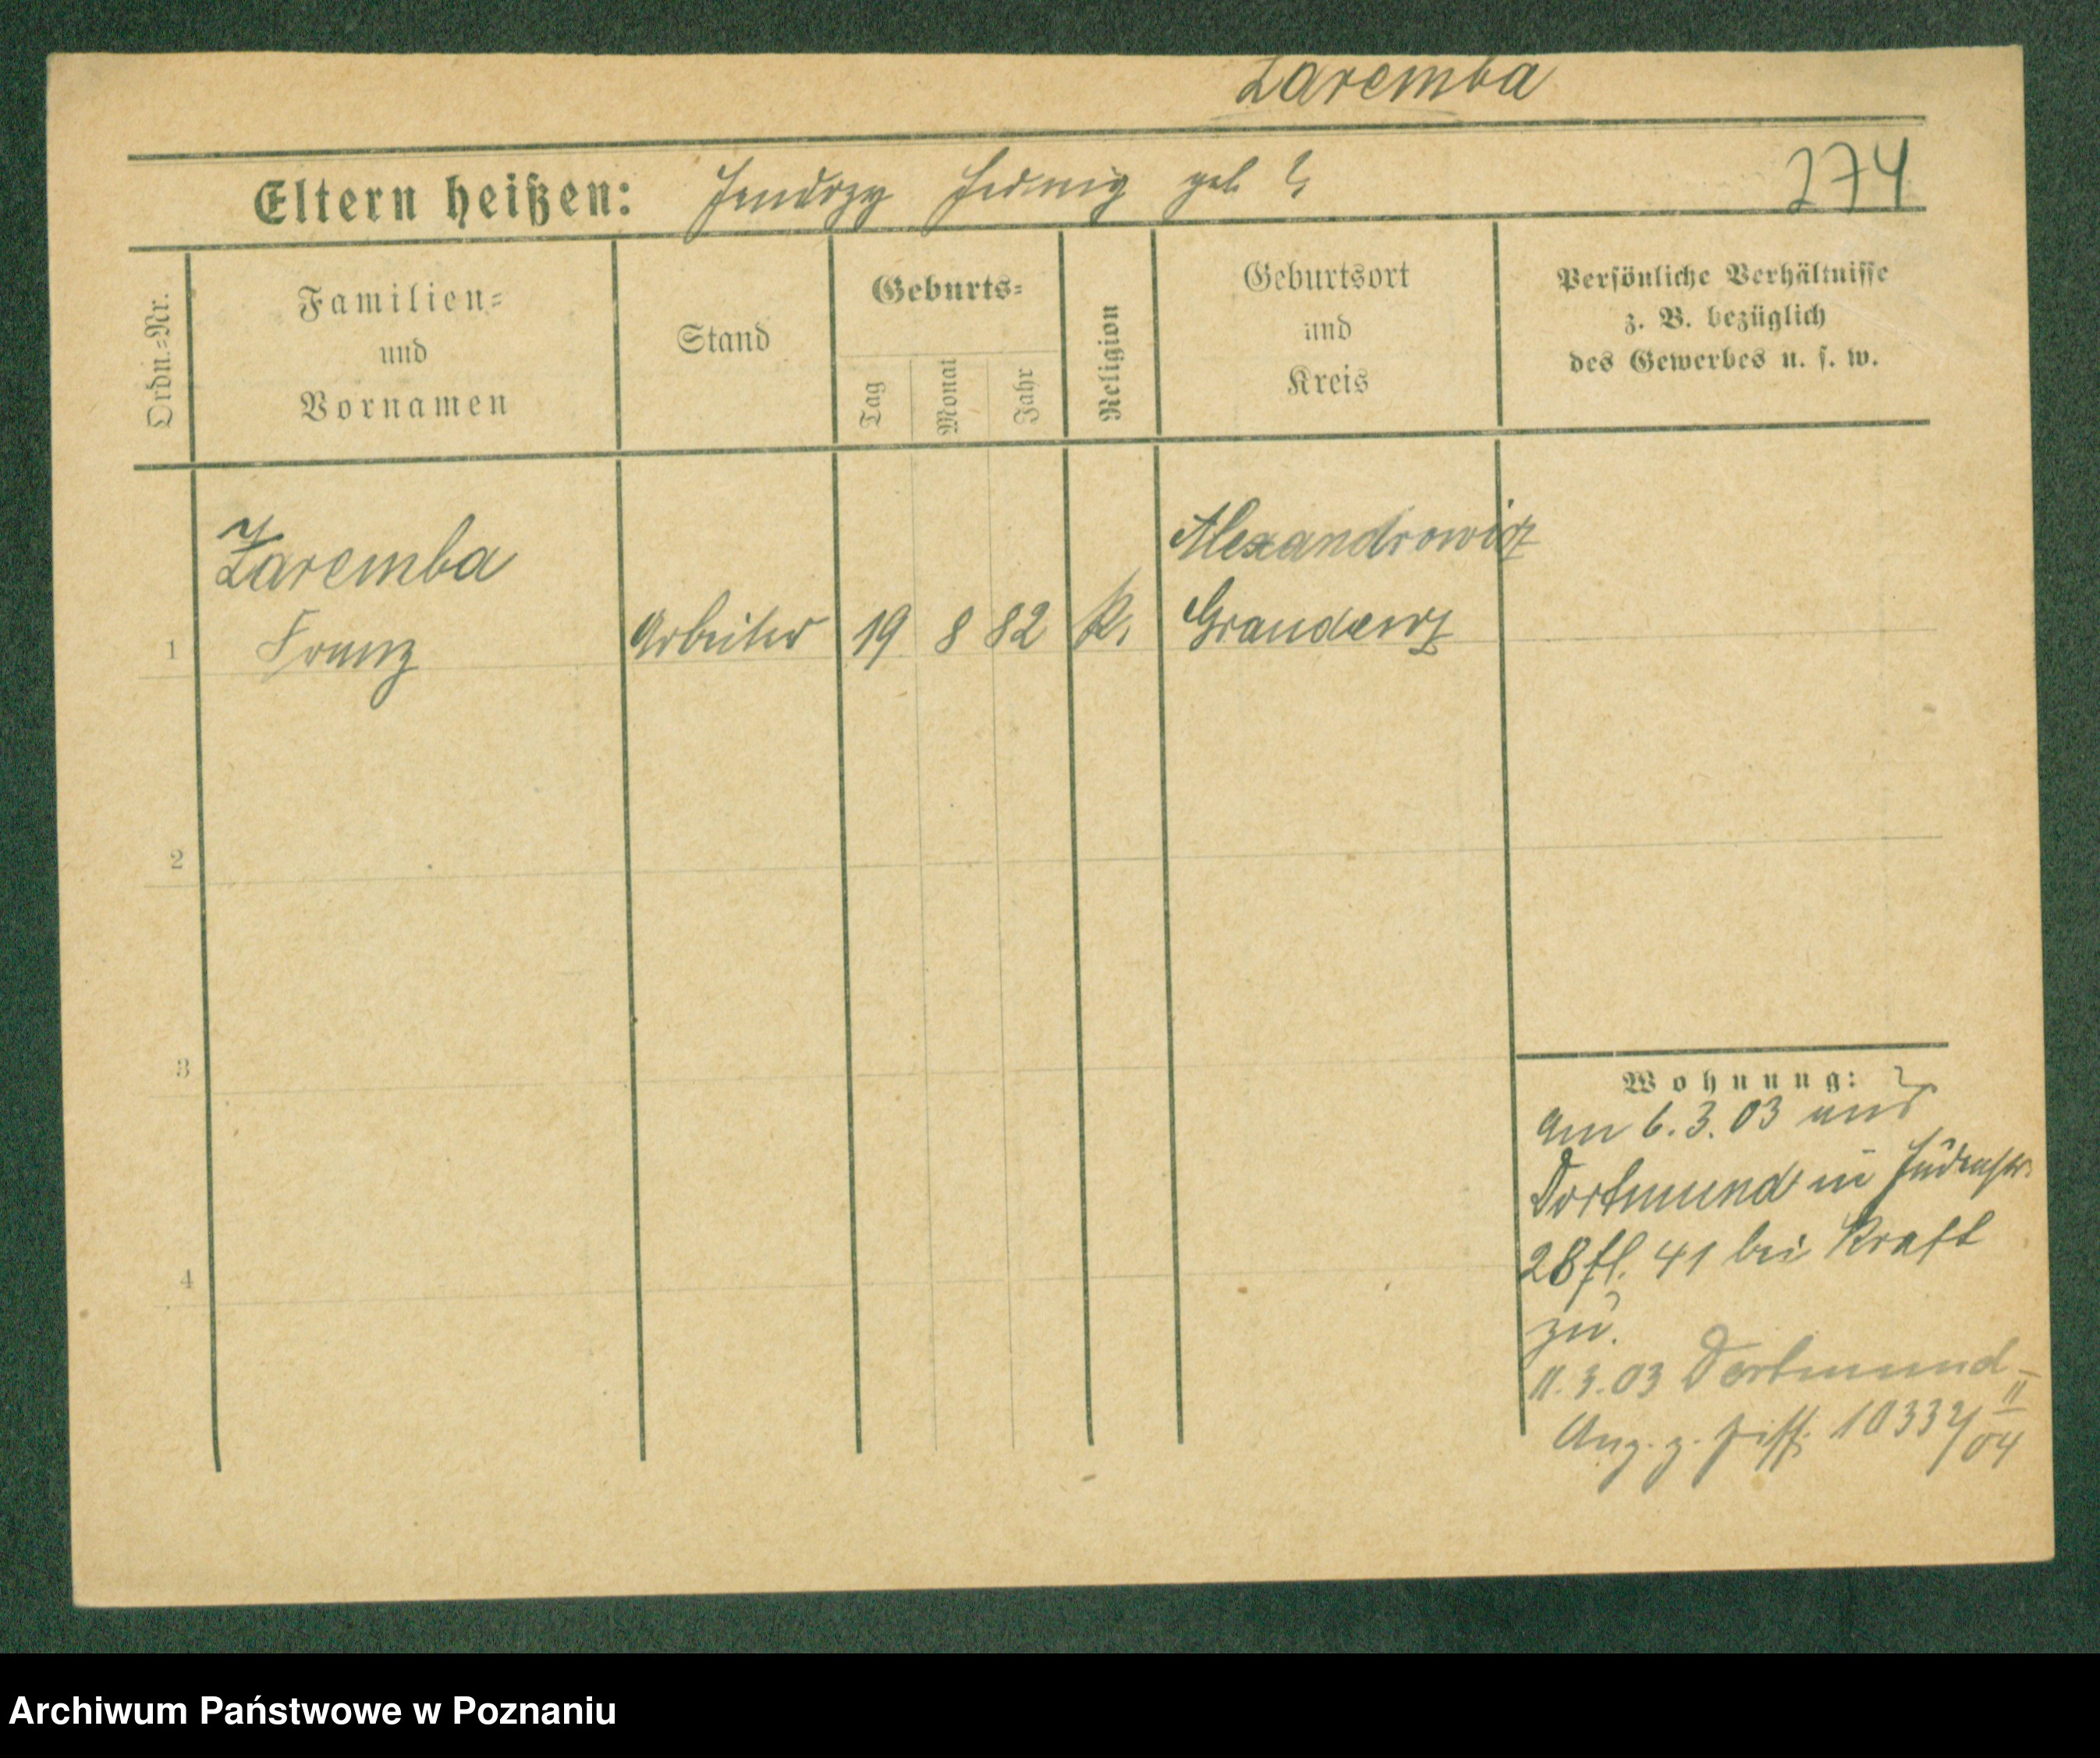 Zaremba
Eltern heißen: Jendrzy Hedwig geb ? 274
Ordn.=Nr.
Familien=
und
Vornamen
Stand
Geburts=
Tag
Monat
Jahr
Religion
Geburtsort
und
Kreis
Persönliche Verhältnisse
z. B. bezüglich
des Gewerbes u. s. w.
Zaremba Alexandrowitz
1 Franz Arbeiter 19 8 82 K. Graudenz
2
3
4
Wohnung:
Am 6.3.03 aus
Dortmund in Judenstr.
28 41 bei Kraft
zu.
11.3.03 Dortmund
10332/II 04
Archiwum Państwowe w Poznaniu